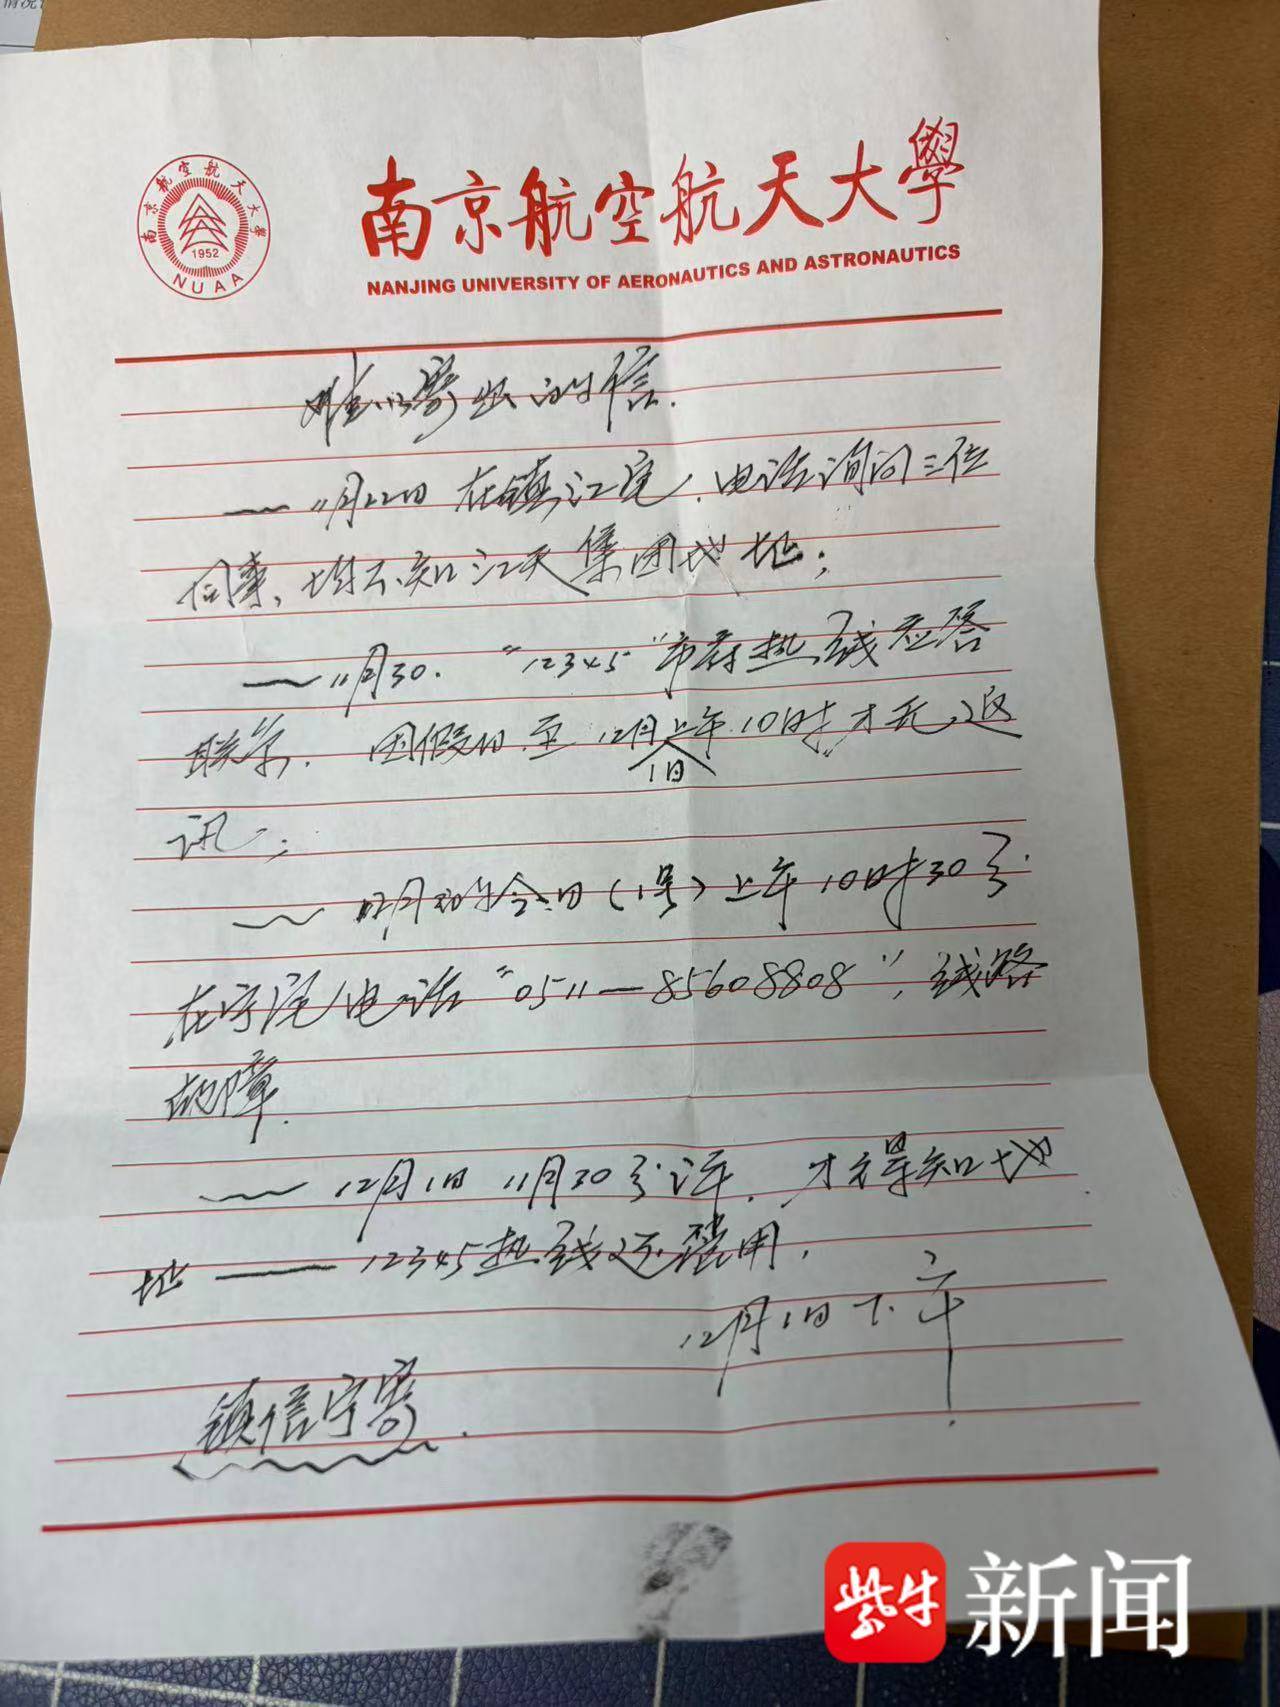 情况
南京航空航天大學
1952
NUAA
南京航空航天大學
NANJING UNIVERSITY OF AERONAUTICS AND ASTRONAUTICS
难以寄出的信.
—11月22日在镇江宅.电话询问三位
同事、均不知江天集团地址;
—11月30.“12345”市府热线应答
联系.因假日.至12月上午10时才无返
1日
讯;
今日(1号)上午10时30分
在宁宅电话“0511—85608808”,线路
故障.
—12月1日11月30分许.才得知地
址——12345热线还强用.
12月1日下午
镇信宁寄.
紫牛新闻